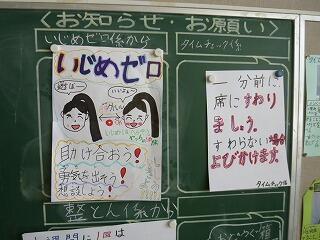 <お知らせ・お願い>
いじめゼロ係から
いじめゼロ
遊ぼー
いいよー
助け合おう!
勇気を出そう!
相談しよう!
タイムチェック係
一分前に
席にすわり
ましょう。
すわらない場合
よびかけます。
タイムチェック係
整とん係から
一週間に1回は